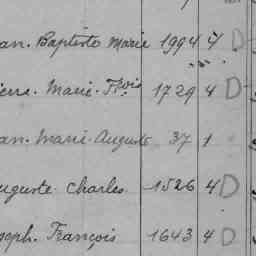 an. Baptiste Marie 1994 4 D
ierre. Marie. Fçois 1729 4 D
an. Marie. Auguste 37 1
uguste Charles 1526 4 D
seph. François 1643 4 D